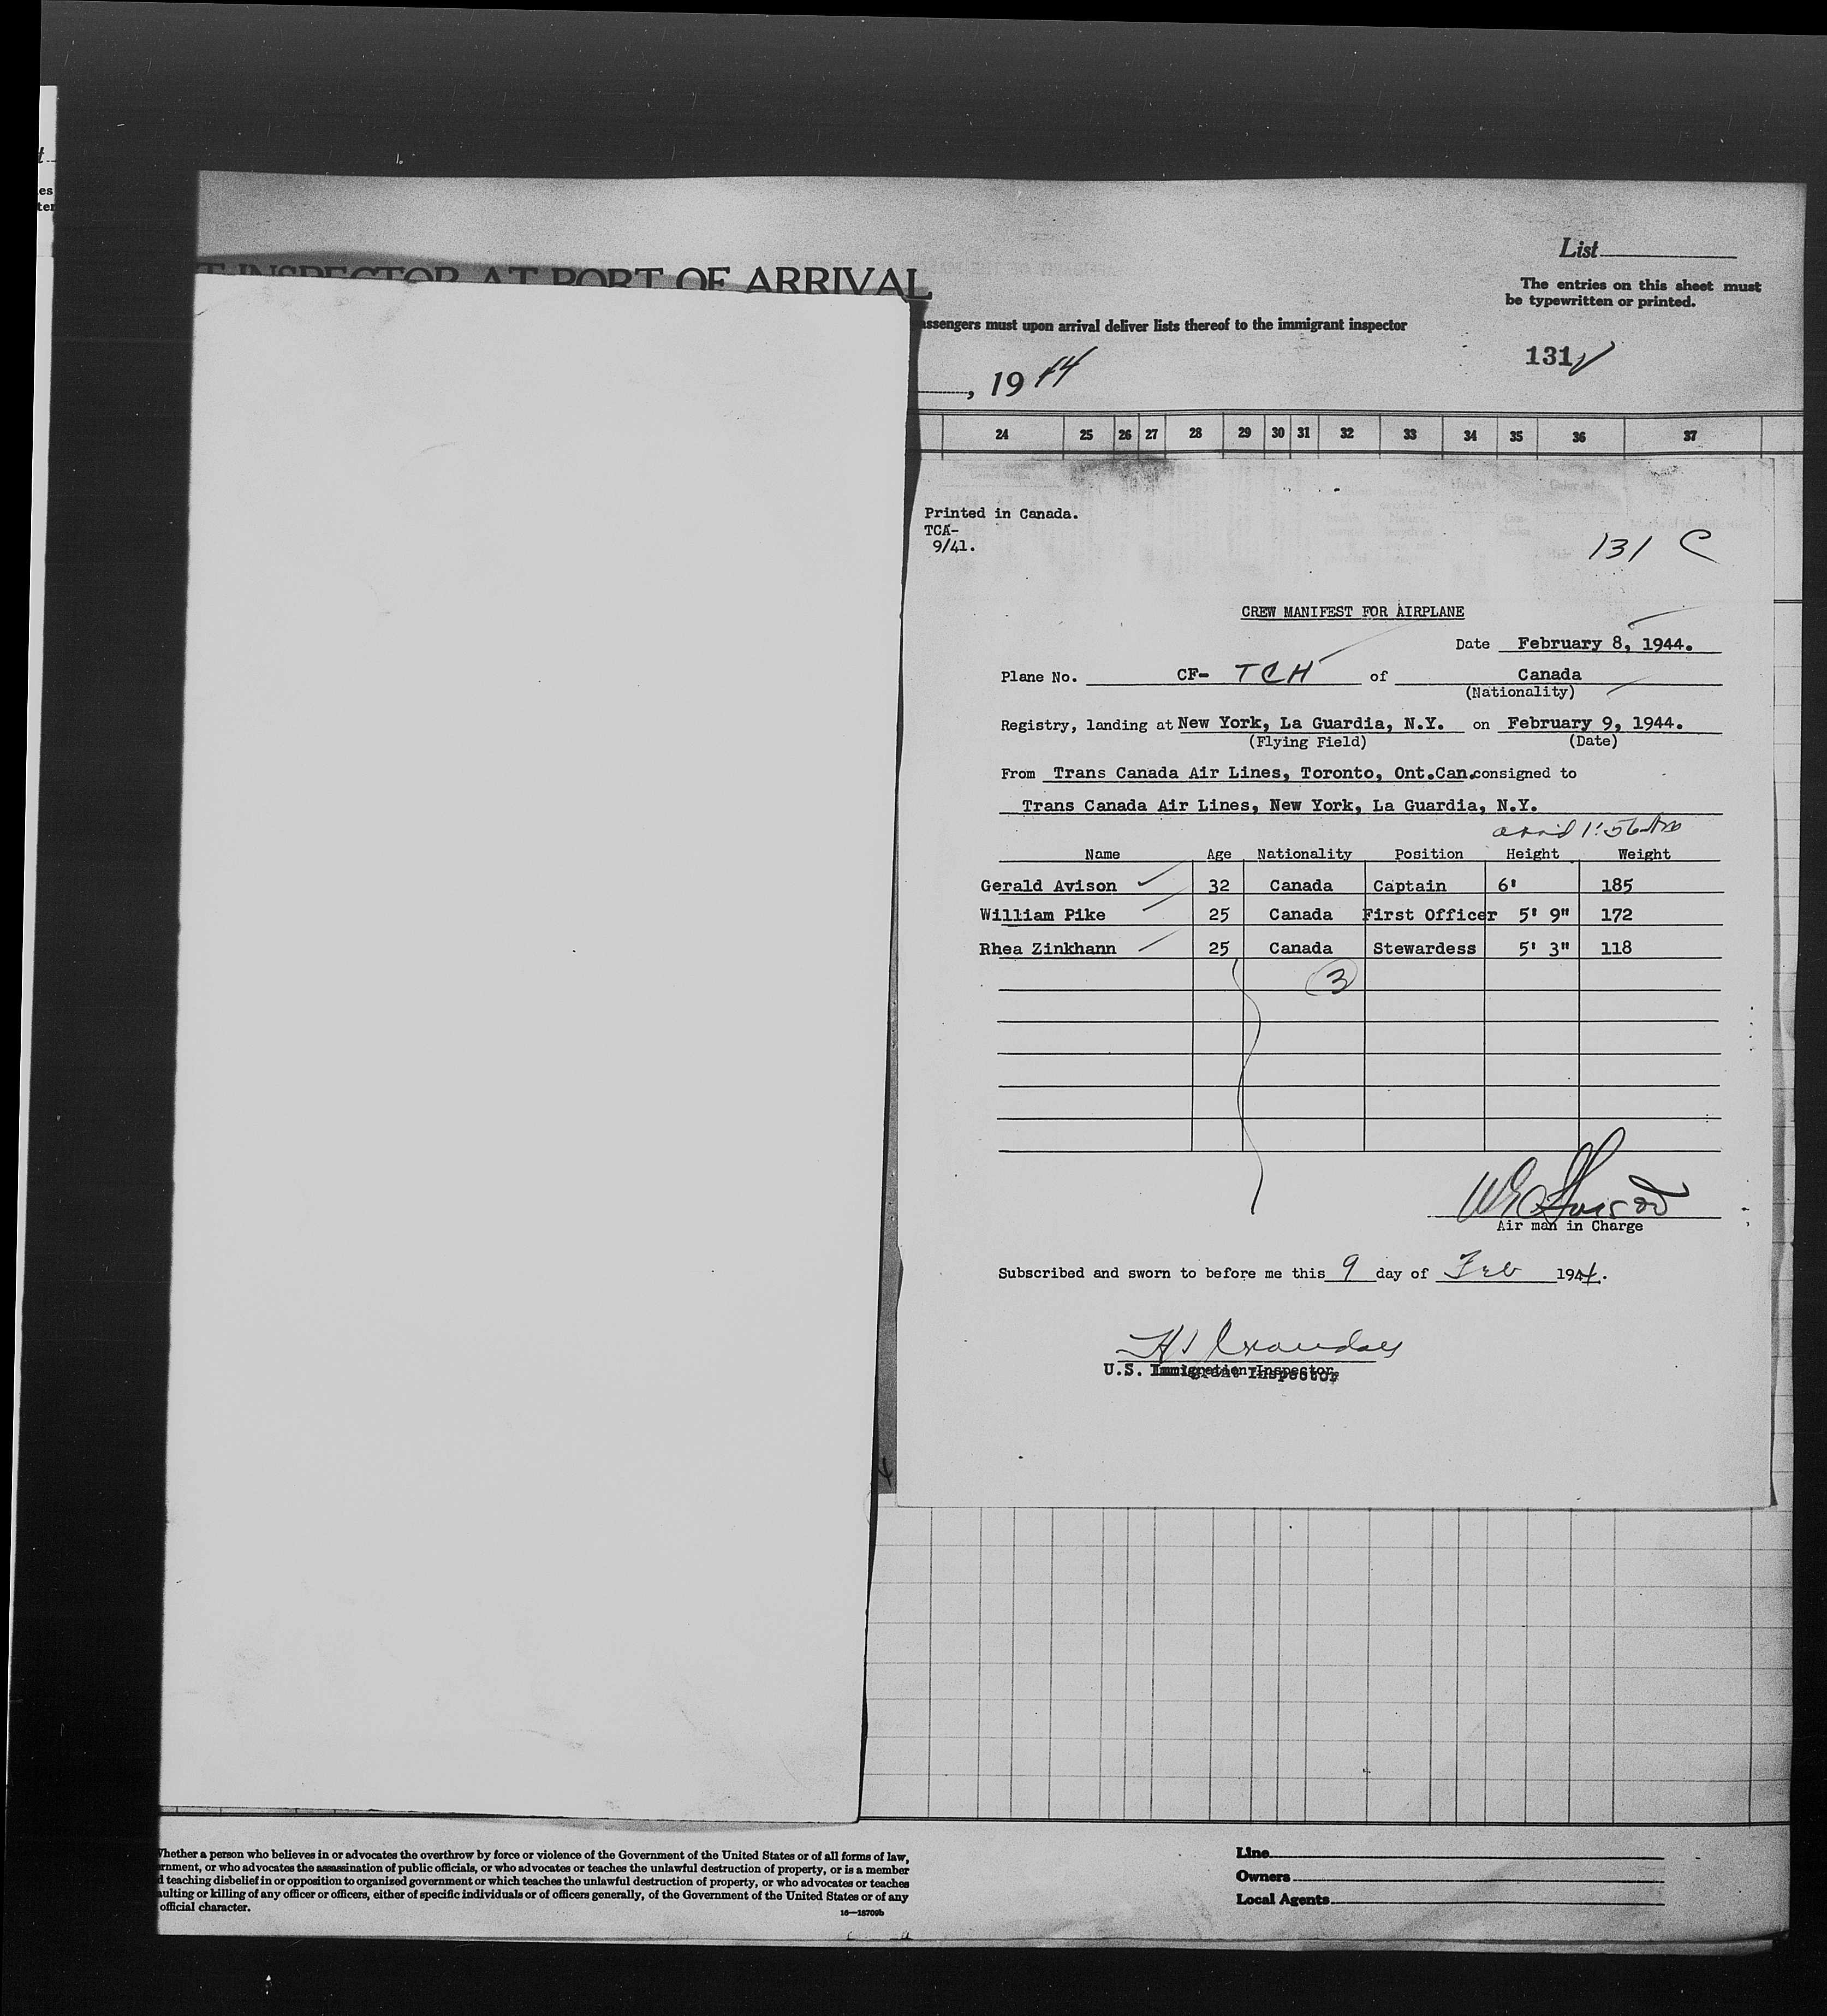 List
T INSPECTOR AT PORT OF ARRIVAL
The entries on this sheet must
be typewritten or printed.
assengers must upon arrival deliver lists thereof to the immigrant inspector
131
, 19 44
24 25 26 27 28 29 30 31 32 33 34 35 36 37
Printed in Canada.
TCA-
9/41.
131 C
CREW MANIFEST FOR AIRPLANE
Date February 8, 1944.
Plane No. CF- TCH of Canada
(Nationality)
Registry, landing at New York, La Guardia, N.Y. on February 9, 1944.
(Flying Field) (Date)
From Trans Canada Air Lines, Toronto, Ont.Can.consigned to
Trans Canada Air Lines, New York, La Guardia, N.Y.
1:56 AM
Name Age Nationality Position Height Weight
Gerald Avison 32 Canada Captain 6' 185
William Pike 25 Canada First Officer 5' 9" 172
Rhea Zinkhann 25 Canada Stewardess 5' 3" 118
3
Air man in Charge
Subscribed and sworn to before me this 9 day of Feb 1944.
U.S. Immigrant Inspector
Whether a person who believes in or advocates the overthrow by force or violence of the Government of the United States or of all forms of law,
ernment, or who advocates the assassination of public officials, or who advocates or teaches the unlawful destruction of property, or is a member
d teaching disbelief in or opposition to organized government or which teaches the unlawful destruction of property, or who advocates or teaches
aulting or killing of any officer or officers, either of specific individuals or of officers generally, of the Government of the United States or of any
official character.
16—18709b
Line
Owners
Local Agents